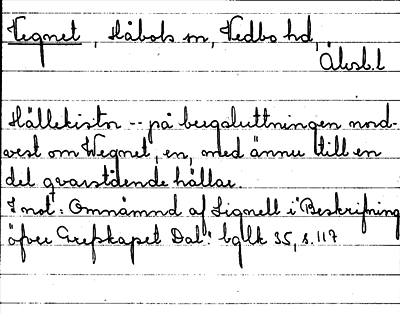 Vegnet, Håbols sn, Vedbo hd,
Älvsb.l
Hällekistor -- på bergsluttningen nord-
vest om Wegnet, en, med ännu till en
del qvarstående hällar.
I not: Omnämnd af Lignell i "Beskrifning
öfver Grefskapet Dal": bglk 35, s. 117